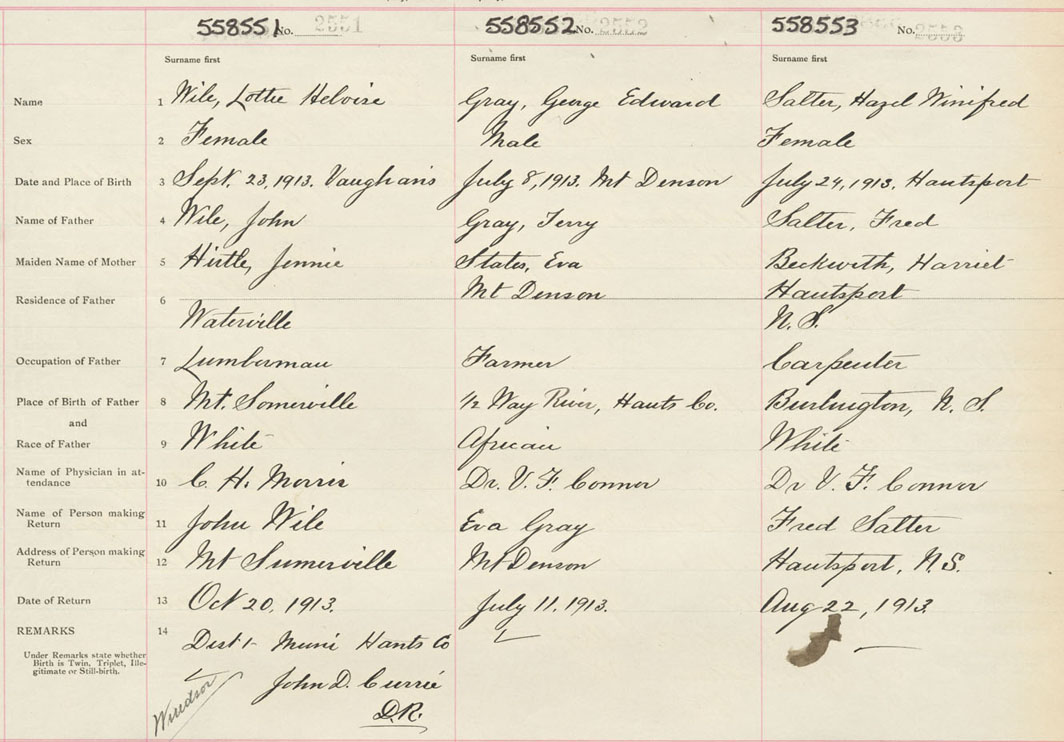 558551 No. 2551 558552 No. 2552 558553 No. 2553
Surname first Surname first Surname first
Name 1 Wile, Lottie Heloise Gray, George Edward Salter, Hazel Winifred
Sex 2 Female Male Female
Date and Place of Birth 3 Sept. 23, 1913. Vaughans July 8, 1913. Mt Denson July 24, 1913. Hantsport
Name of Father 4 Wile, John Gray, Terry Salter, Fred
Maiden Name of Mother 5 Hirtle, Jennie States, Eva Beckwith, Harriet
Residence of Father 6 Mt Denson Hantsport
Waterville N.S.
Occupation of Father 7 Lumberman Farmer Carpenter
Place of Birth of Father 8 Mt. Somerville 1/2 Way River, Hants Co. Burlington, N.S.
and
Race of Father 9 White African White
Name of Physician in at-
tendance 10 C. H. Morris Dr. V. F. Connor Dr V. F. Connor
Name of Person making
Return 11 John Wile Eva Gray Fred Salter
Address of Person making
Return 12 Mt Sumerville Mt Denson Hantsport, N.S.
Date of Return 13 Oct 20, 1913. July 11, 1913. Aug 22, 1913
REMARKS 14 Dist 1- Muni Hants Co
Under Remarks state whether
Birth is Twin, Triplet, Ille-
gitimate or Still-birth.
John D. Currie
D.R.
Windsor